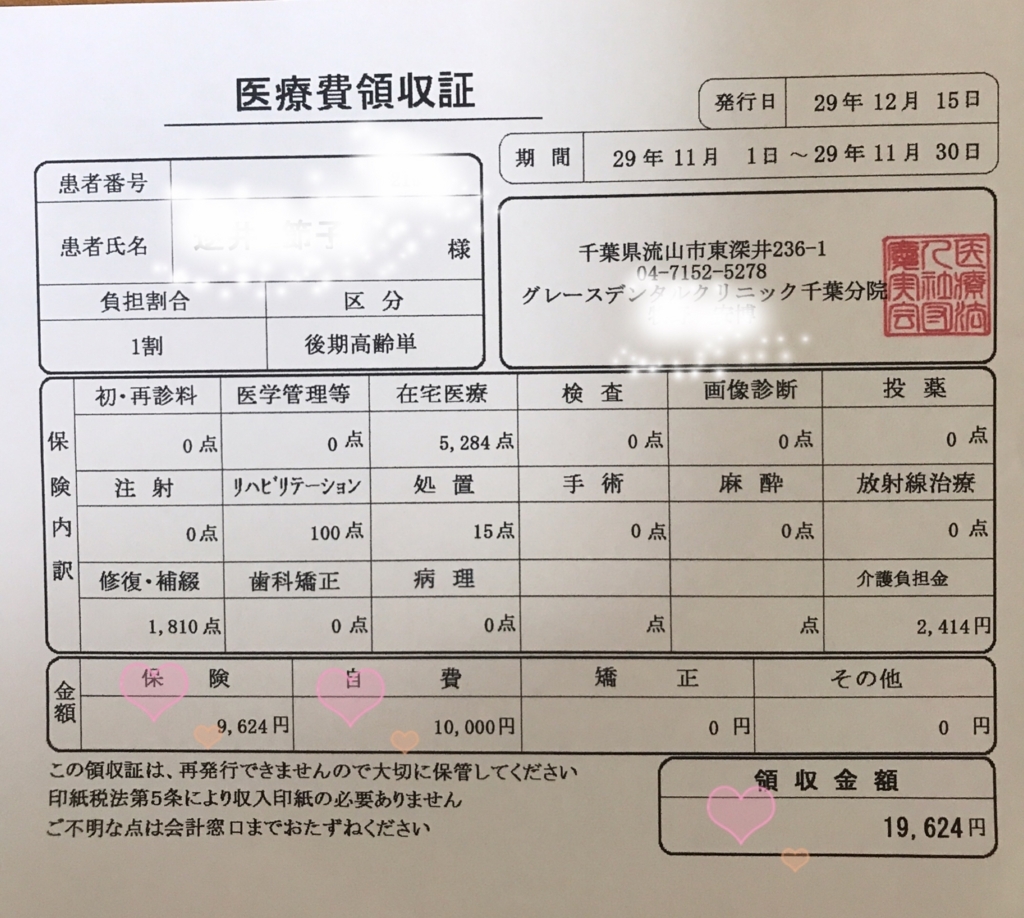 医療費領収証
発行日 29年 12月 15日
期間 29年 11月 1日 ～ 29年 11月 30日
患者番号
患者氏名 様
負担割合 区分
1割 後期高齢単
千葉県流山市東深井236-1
04-7152-5278
グレースデンタルクリニック千葉分院
保険内訳
初・再診料 医学管理等 在宅医療 検査 画像診断 投薬
0点 0点 5,284点 0点 0点 0点
注射 ﾘﾊﾋﾞﾘﾃｰｼｮﾝ 処置 手術 麻酔 放射線治療
0点 100点 15点 0点 0点 0点
修復・補綴 歯科矯正 病理 介護負担金
1,810点 0点 0点 点 点 2,414円
金額
保険 自費 矯正 その他
9,624円 10,000円 0円 0円
この領収証は、再発行できませんので大切に保管してください
印紙税法第5条により収入印紙の必要ありません
ご不明な点は会計窓口までおたずねください
領収金額
19,624円